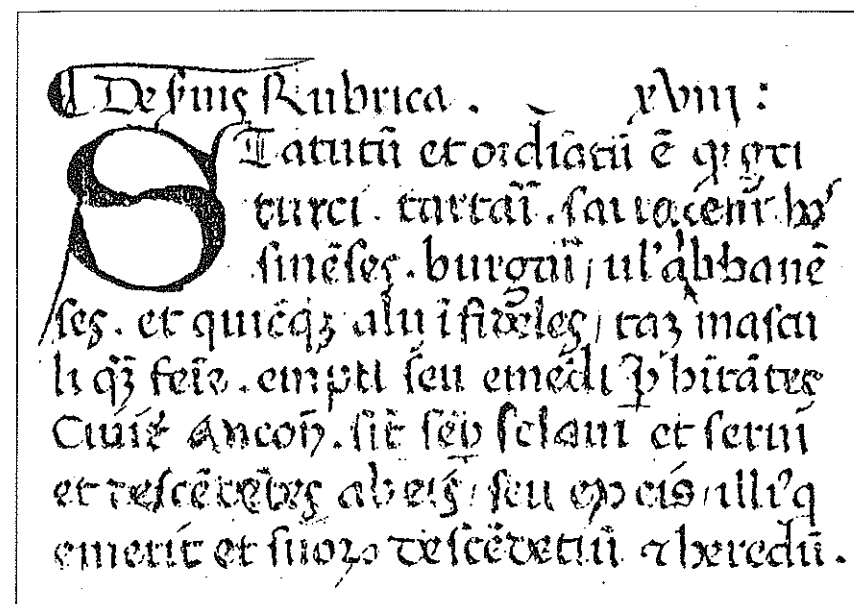 ¶ De s̄uis Rubrica . xviii :
Statutū et ordiātū ē q greci
turci . tartaī . sarraceni bos
sinēses . burgaī / ul' abbanē
ses . et quicq̄ȝ alii īfideles / taȝ mascu
li q̄ȝ feīe . empti seu emēdi p hītātes
Civit̄ Ancoñ . sīt sēp sclavi et servi
et descēdētes ab eis / seu ex eis / illiꝰ q
emerit et suoꝝ descēdētiū ⁊ heredū .